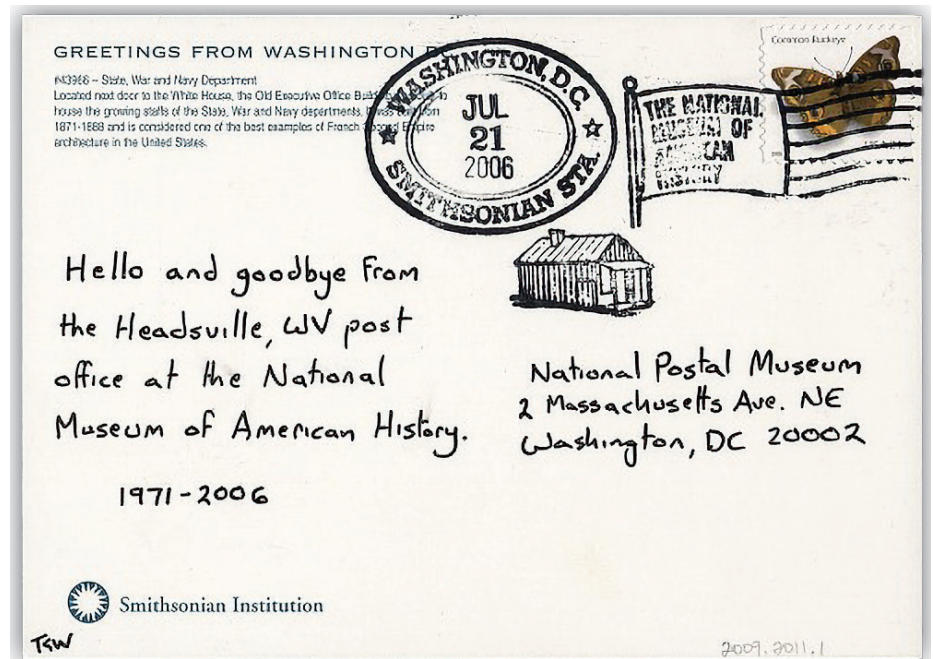 GREETINGS FROM WASHINGTON
– State, War and Navy Department
Located next door to the White House, the Old Executive Office to
house the growing staffs of the State, War and Navy departments. from
1871-1888 and is considered one of the best examples of French Second Empire
architecture in the United States.
WASHINGTON, D.C.
JUL
21
2006
SMITHSONIAN STA.
THE NATIONAL
MUSEUM OF
AMERICAN
HISTORY
Common Buckeye
Hello and goodbye from
the Headsville, WV post
office at the National
Museum of American History.
1971-2006
National Postal Museum
2 Massachusetts Ave. NE
Washington, DC 20002
Smithsonian Institution
TGW
2009.2011.1